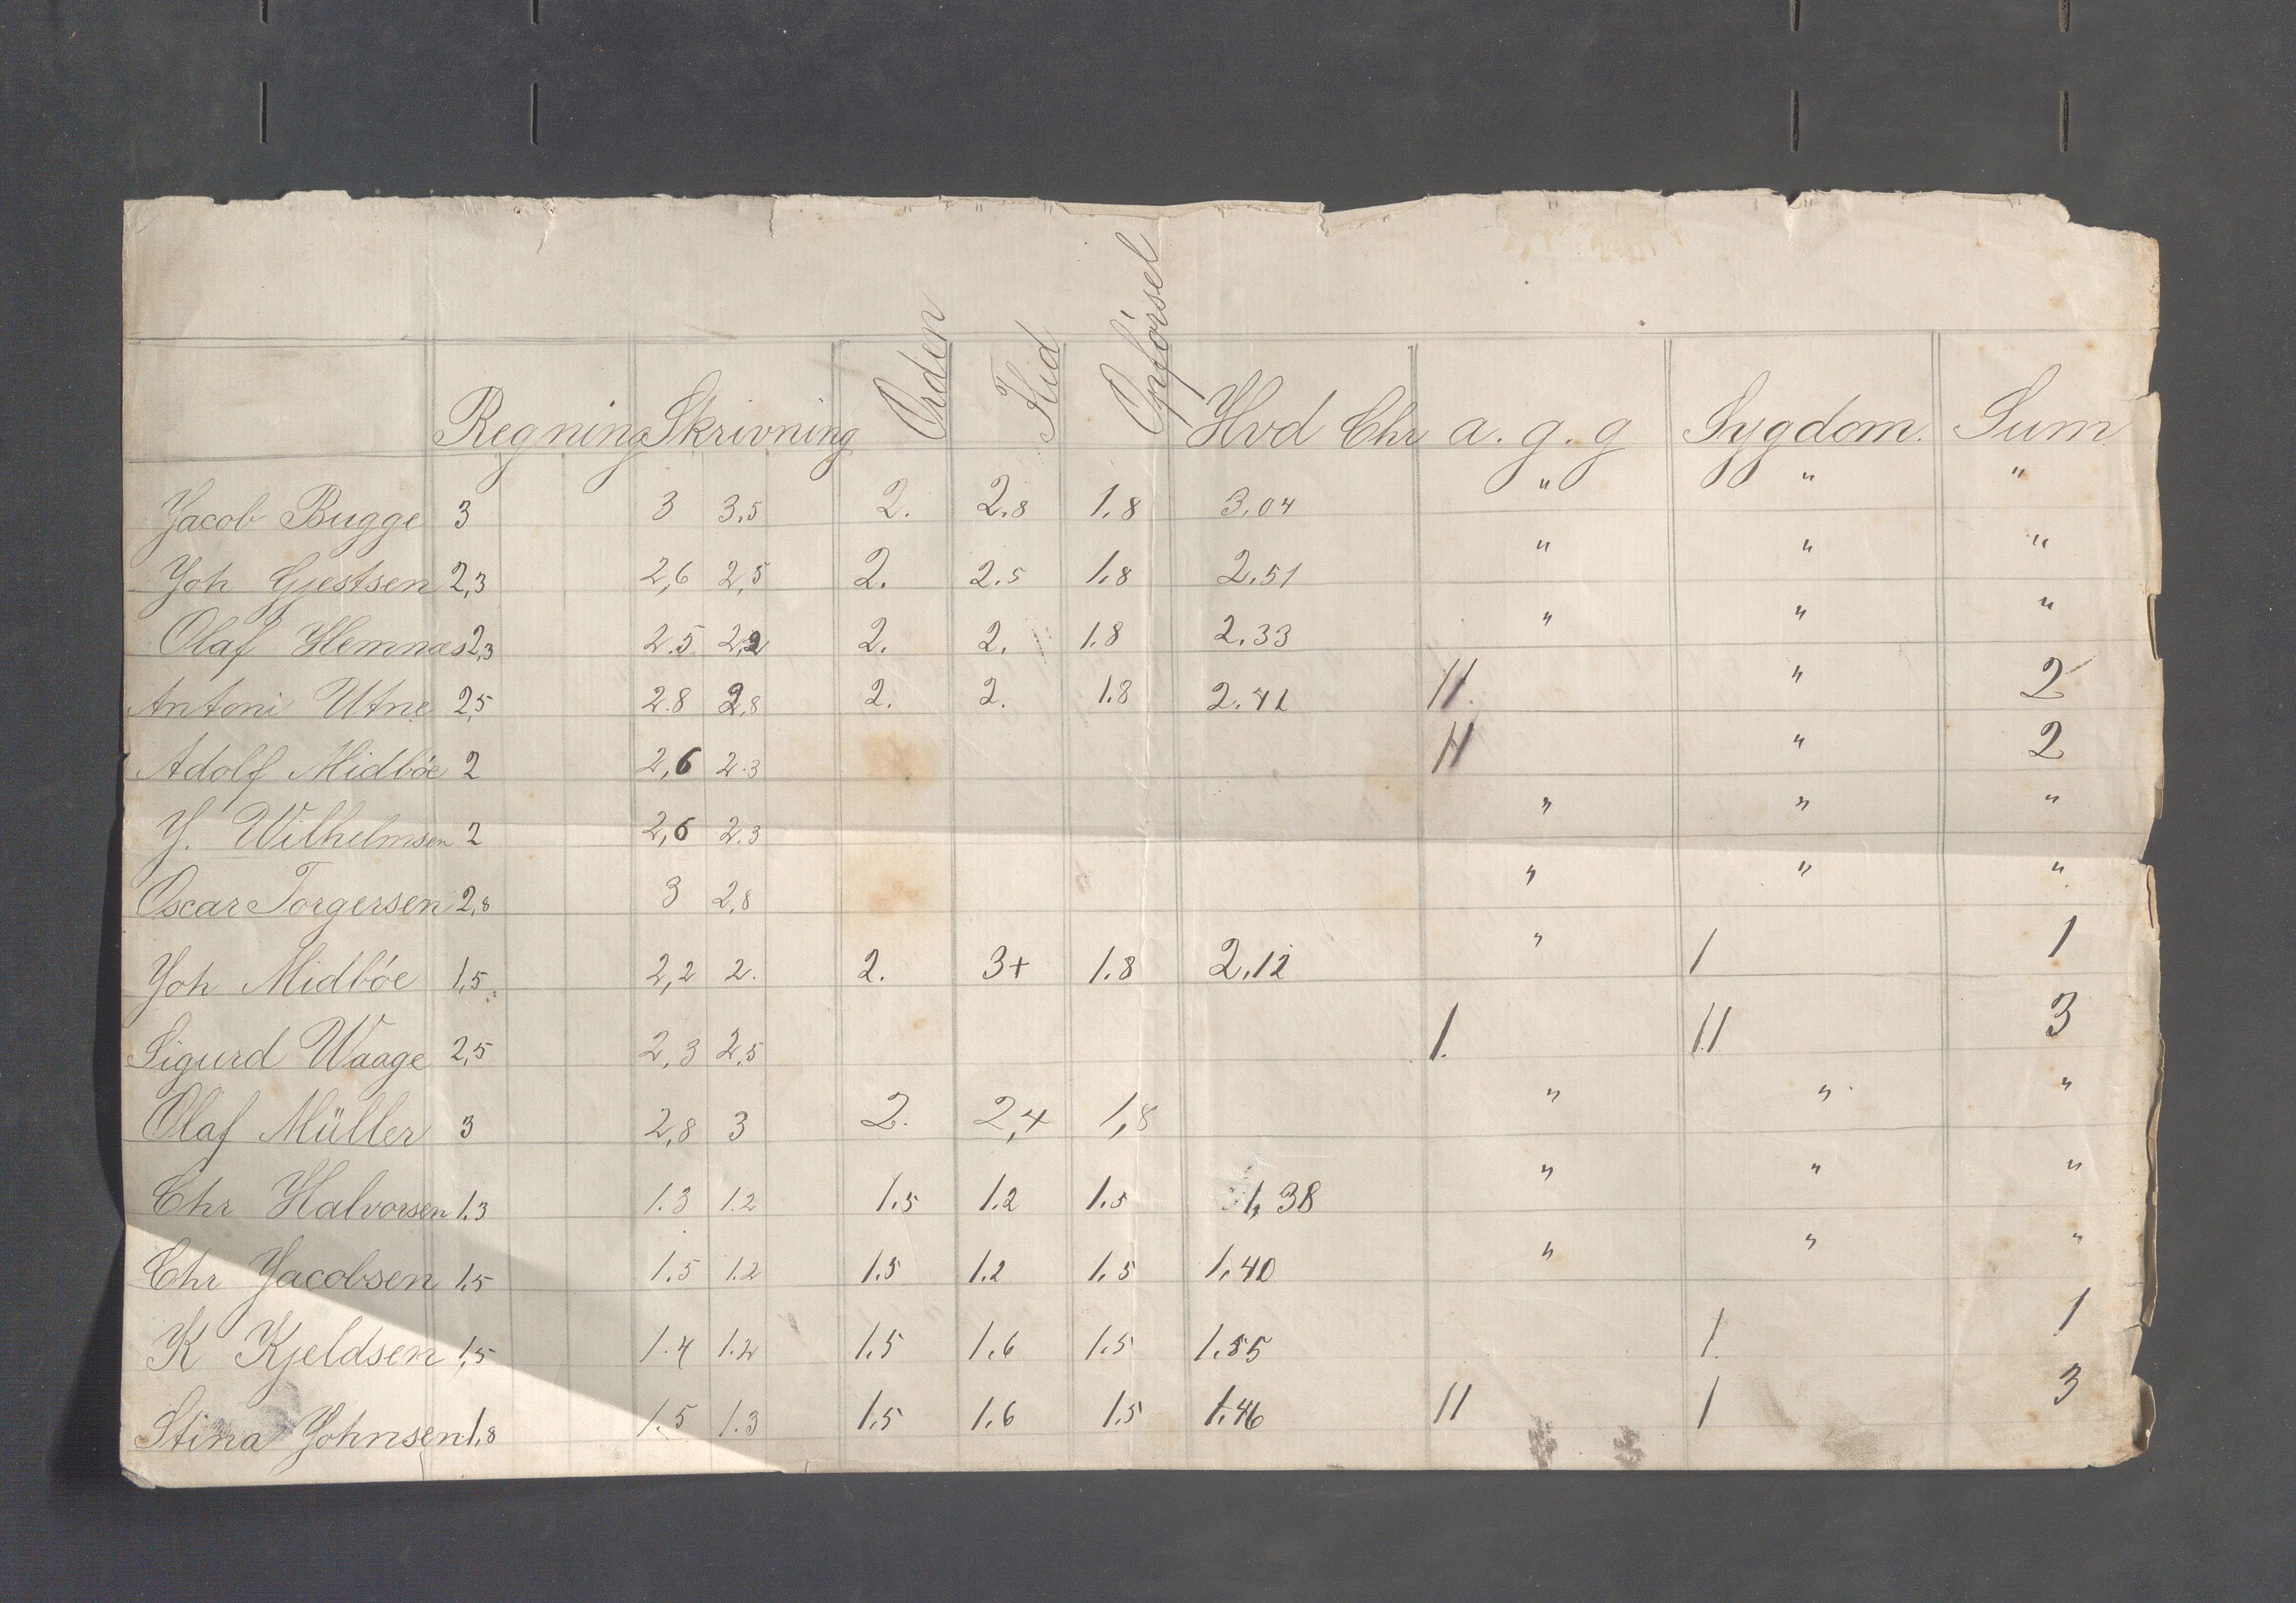 Regning Skrivning Orden Flid Opförsel Hvd Chr a. g. g Sygdom. Sum
Jacob Bugge 3 3 3,5 2. 2.8 1.8 3.04 " " "
Joh Gjestsen 2,3 2,6 2,5 2. 2.5 1.8 2.51 " " "
Olaf Hemnæs 2,3 2.5 2,2 2. 2. 1.8 2.33 " " "
Antoni Utne 2,5 2.8 2,8 2. 2. 1.8 2.41 11. " 2
Adolf Midböe 2 2,6 2.3 11 " 2
J. Wilhelmsen 2 2,6 2.3 " " "
Oscar Torgersen 2,8 3 2,8 " " "
Joh Midböe 1,5 2,2 2. 2. 3+ 1.8 2.12 " 1 1
Sigurd Waage 2,5 2,3 2,5 1. 11 3
Olaf Müller 3 2,8 3 2. 2,4 1,8 " " "
Chr Halvorsen 1.3 1.3 1.2 1.5 1.2 1.5 1,38 " " "
Chr Jacobsen 1,5 1.5 1.2 1.5 1.2 1.5 1.40 " " "
K Kjeldsen 1,5 1.4 1.2 1.5 1.6 1.5 1.55 1. 1
Stina Johnsen 1,8 1.5 1.3 1.5 1.6 1.5 1.46 11 1 3